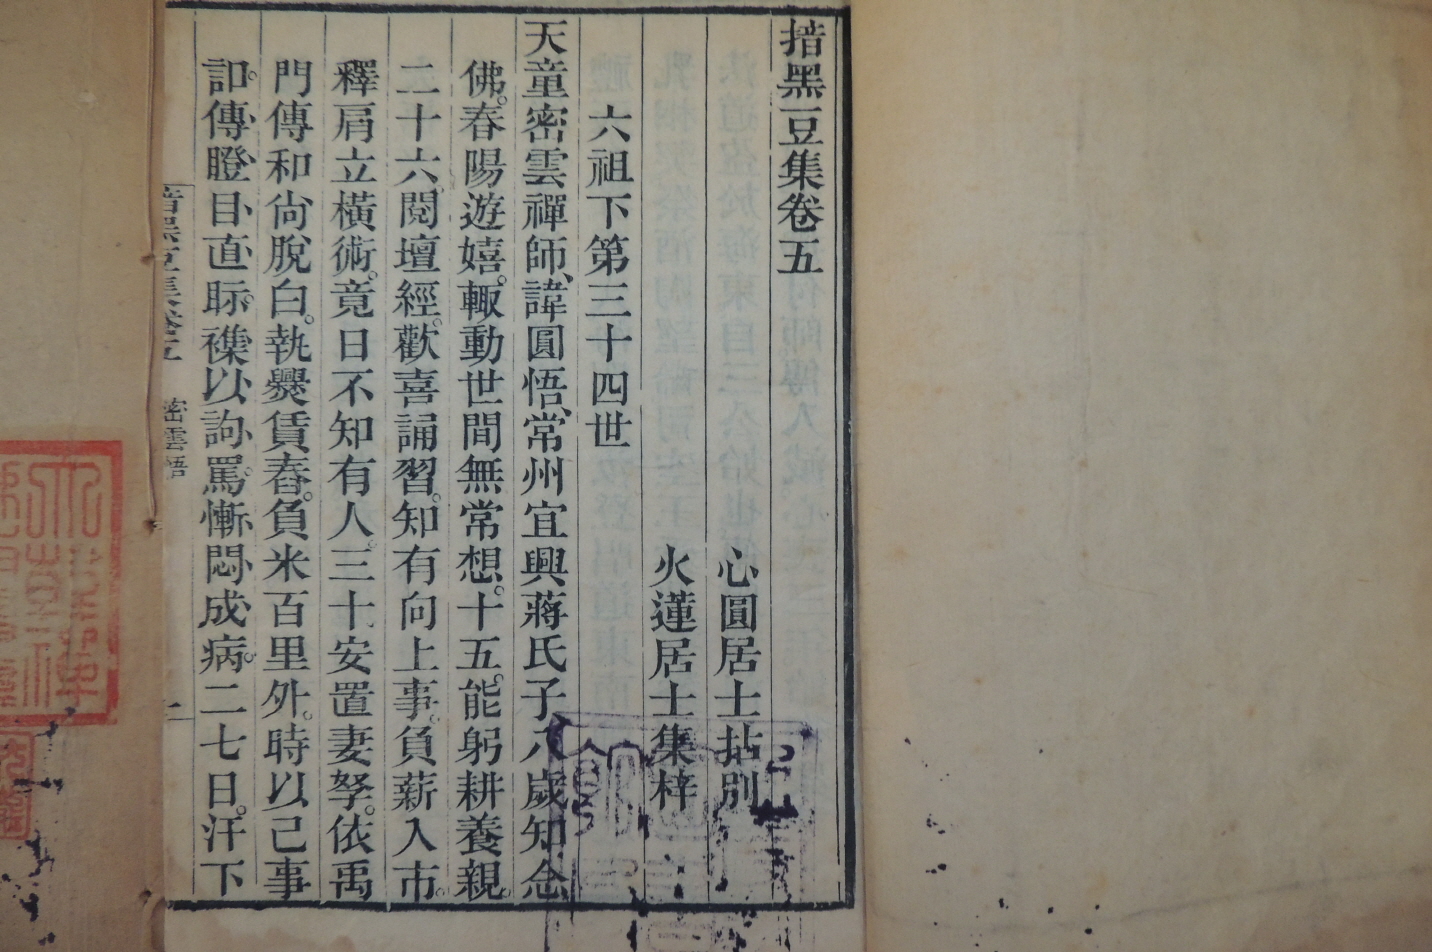 揞黑豆集卷五
心圓居士拈別
火蓮居士集梓
六祖下第三十四世
天童密雲禪師、諱圓悟、常州宜興蔣氏子八歲知念
佛。春陽遊嬉。輙動世間無常想。十五。能躬耕養親。
二十六。閱壇經。歡喜誦習。知有向上事。負薪入市。
釋肩立橫術。竟日不知有人。三十。安置妻孥。依禹
門傳和尙脫白。執爨賃舂。負米百里外。時以己事
詔。傳瞪目直眎。襍以訽罵。慚悶成病。二七日。汗下
揞黑豆集卷五
密雲悟
一